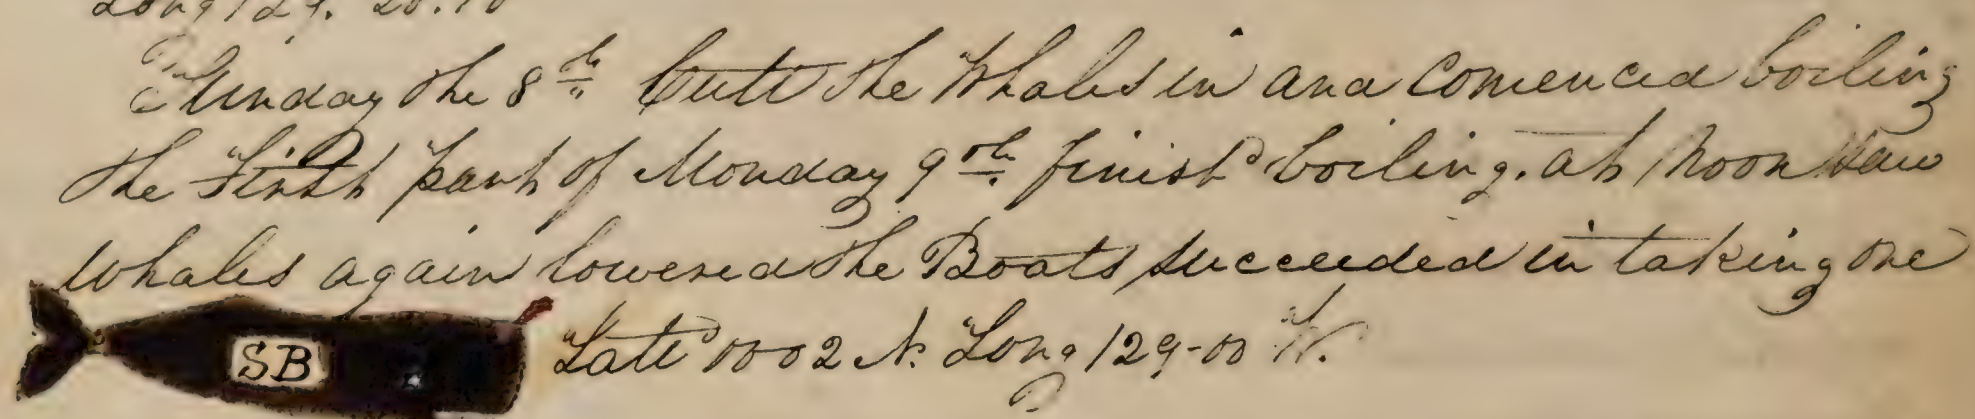 Long 129. 20.10
Sunday the 8th Cutt the Whales in and Comenced boiling
the First part of Monday 9th finisht boiling. at Noon Saw
whales again lowered the Boats succeeded in taking one
SB Latt 00-02 N. Long 129-00 W.